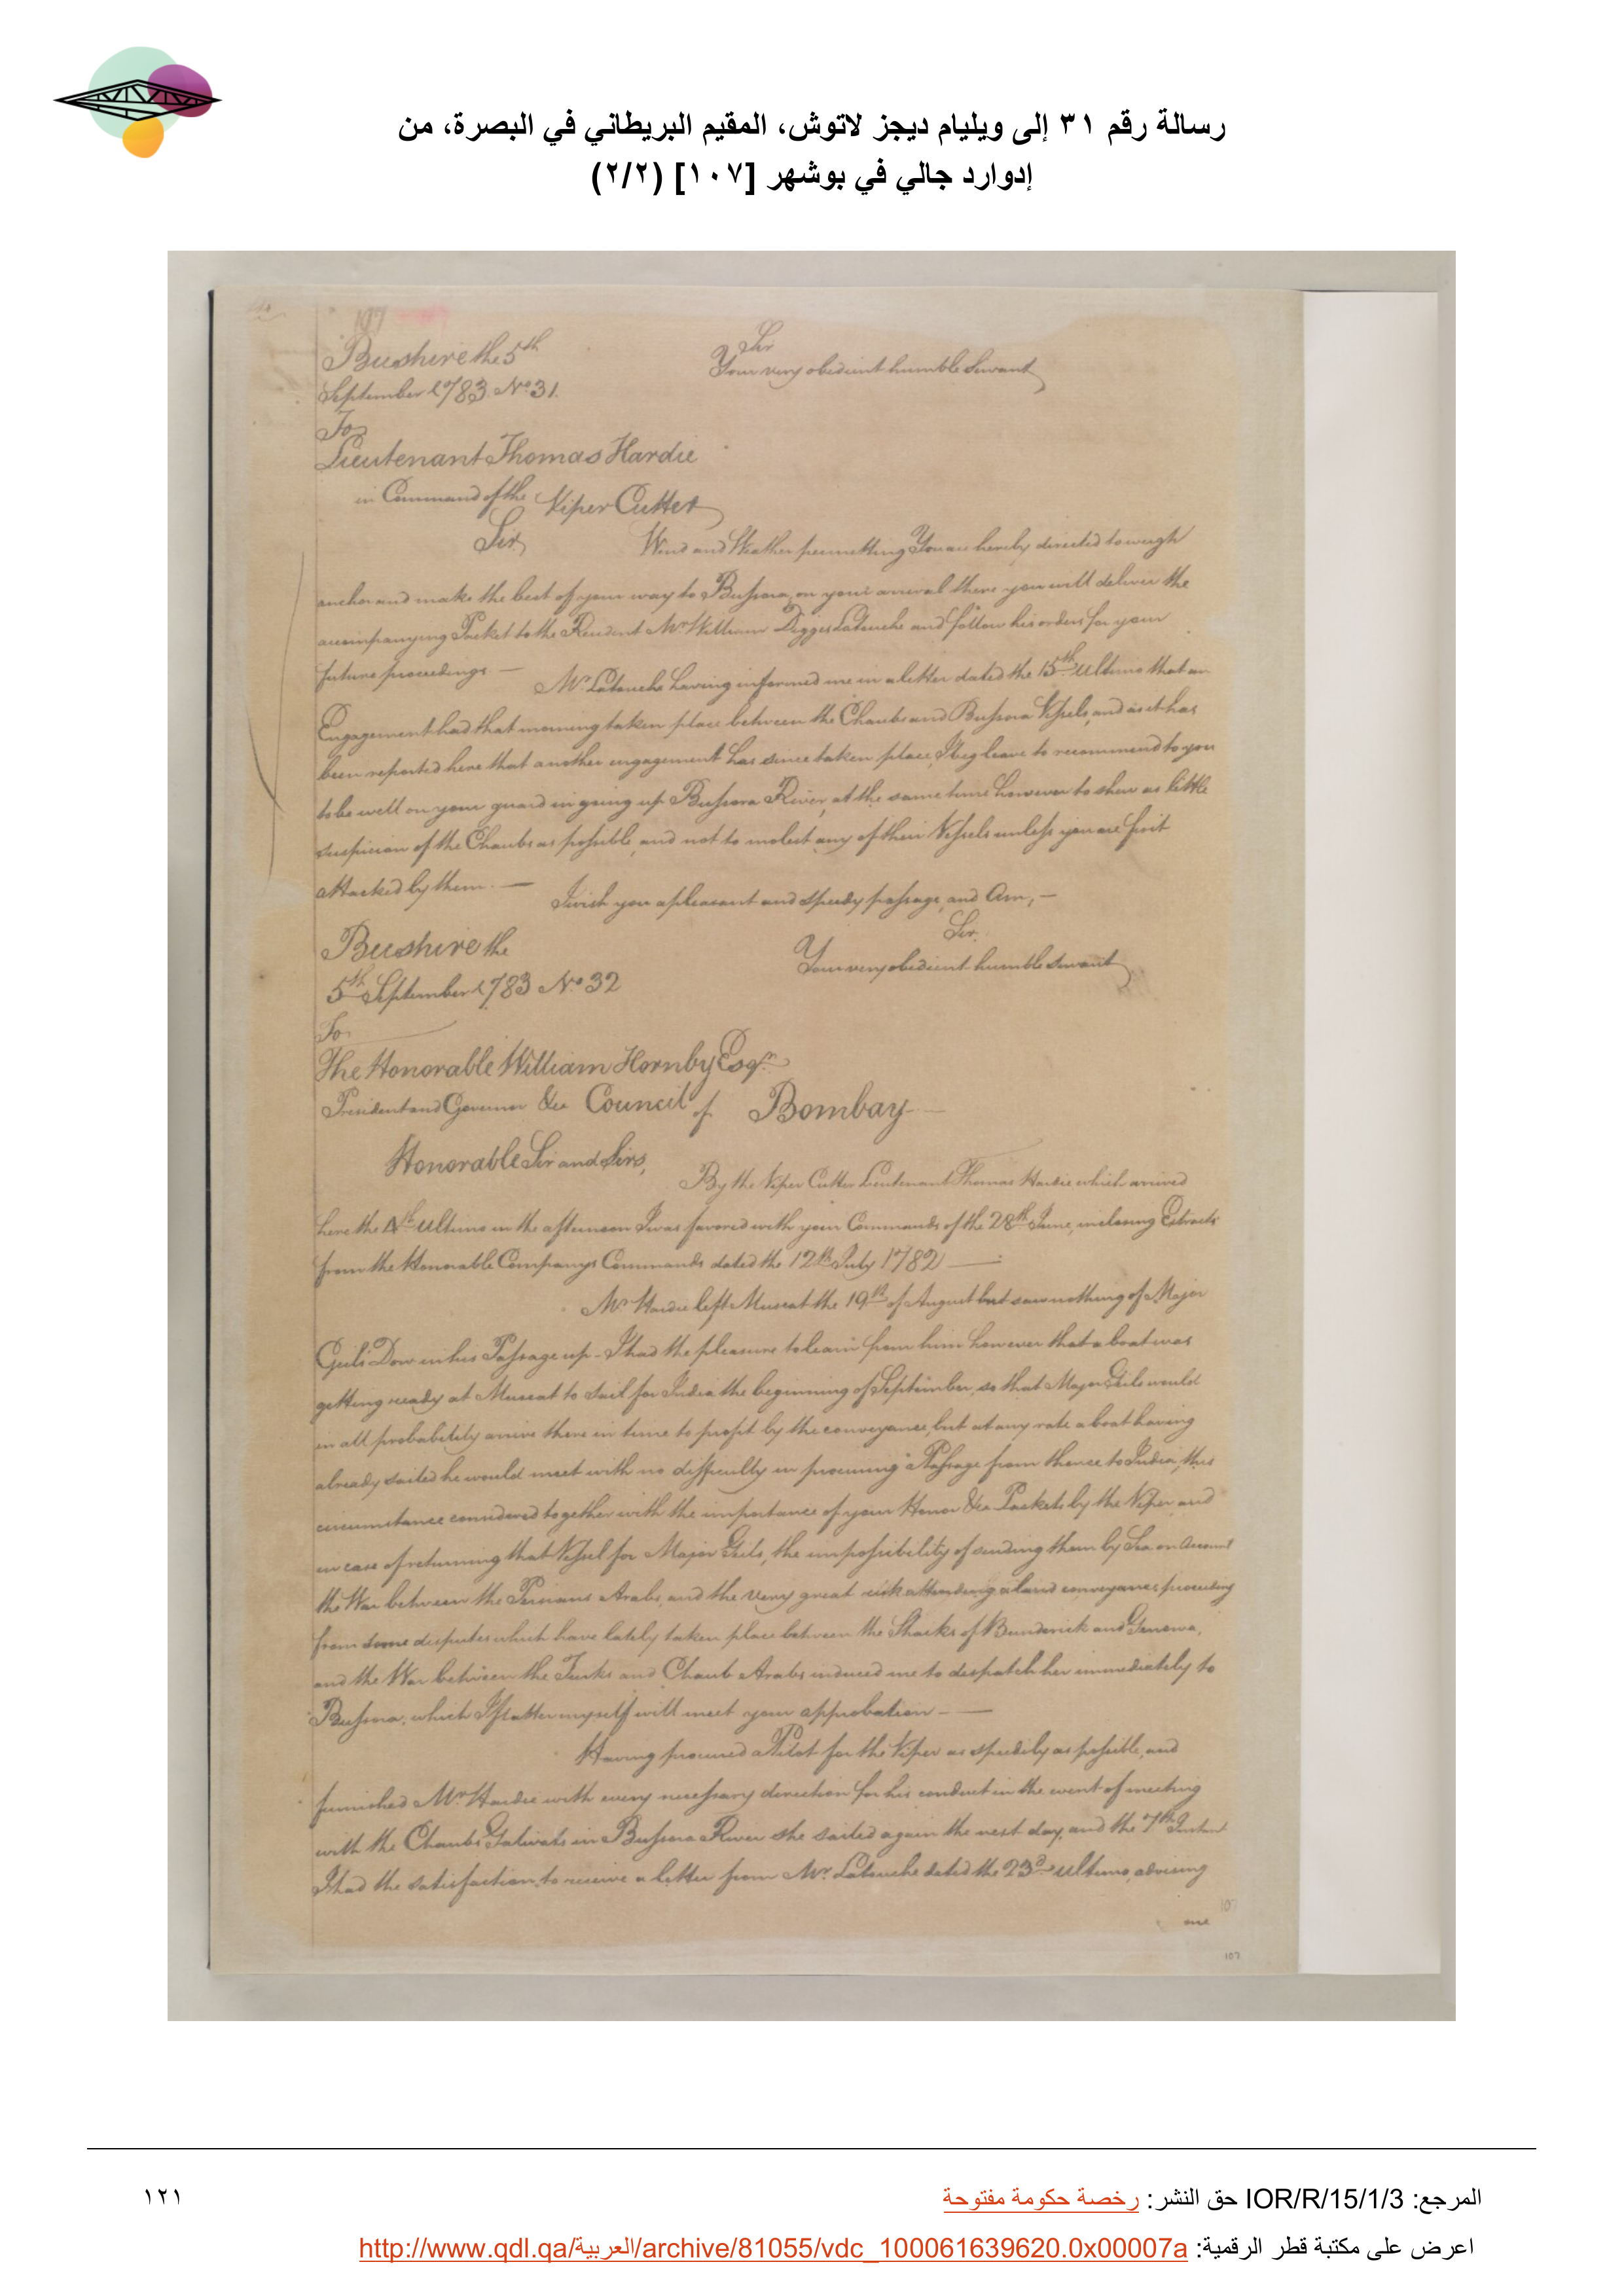 رسالة رقم ٣١ إلى ويليام ديجز لاتوش، المقيم البريطاني في البصرة، من
إدوارد جالي في بوشهر [١٠٧] (٢/٢)
197
Sir
Bushire the 5th
Your very obedient humble Servant
September 1783 No 31.
To
Lieutenant Thomas Hardie
in Command of the Viper Cutter
Sir, Wind and Weather permitting You are hereby directed to weigh
anchor and make the best of your way to Bussora, on your arrival there you will deliver the
accompanying Packet to the Resident Mr William Digges Latouche and follow his orders for your
future proceedings —
Mr Latouche having informed me in a letter dated the 15th Ultimo that an
Engagement had that morning taken place between the Chaubs and Bussora Vessels, and as it has
been reported here that another engagement has since taken place, I beg leave to recommend to you
to be well on your guard in going up Bussora River, at the same time however to shew as little
suspicion of the Chaubs as possible, and not to molest any of their Vessels unless you are first
attacked by them. —
I wish you a pleasant and speedy passage, and Am, —
Sir.
Bushire the
Your very obedient humble Servant
5th September 1783 No 32
To
The Honorable William Hornby Esqr
President and Governor &ca Council of Bombay
Honorable Sir and Sirs,
By the Viper Cutter Lieutenant Thomas Hardie which arrived
here the 4th Ultimo in the afternoon I was favored with your Commands of the 28th June, inclosing Extracts
from the Honorable Companys Commands dated the 12th July 1782 —
Mr Hardie left Muscat the 19th of August but saw nothing of Major
Geils Dow in his Passage up - I had the pleasure to learn from him however that a boat was
getting ready at Muscat to sail for India the beginning of September, so that Major Geils would
in all probability arrive there in time to profit by the conveyance, but at any rate a boat having
already sailed he would meet with no difficulty in procuring a Passage from thence to India, this
circumstance considered together with the importance of your Honor &ca Packets by the Viper and
in case of returning that Vessel for Major Geils, the impossibility of sending them by Sea on Account
the War between the Persians Arabs, and the very great risk attending a land conveyance proceeding
from some disputes which have lately taken place between the Shaiks of Bunderick and Genowa,
and the War between the Turks and Chaub Arabs induced me to despatch her immediately to
Bussora, which I flatter myself will meet your approbation —
Having procured a Pilot for the Viper as speedily as possible, and
furnished Mr Hardie with every necessary direction for his conduct in the event of meeting
with the Chaubs Galivats in Bussora River she sailed again the next day, and the 7th Instant
I had the satisfaction to receive a letter from Mr. Latouche dated the 23d ultimo, advising
me
107
107
المرجع: IOR/R/15/1/3 حق النشر: رخصة حكومة مفتوحة
١٢١
اعرض على مكتبة قطر الرقمية: http://www.qdl.qa/العربية/archive/81055/vdc_100061639620.0x00007a